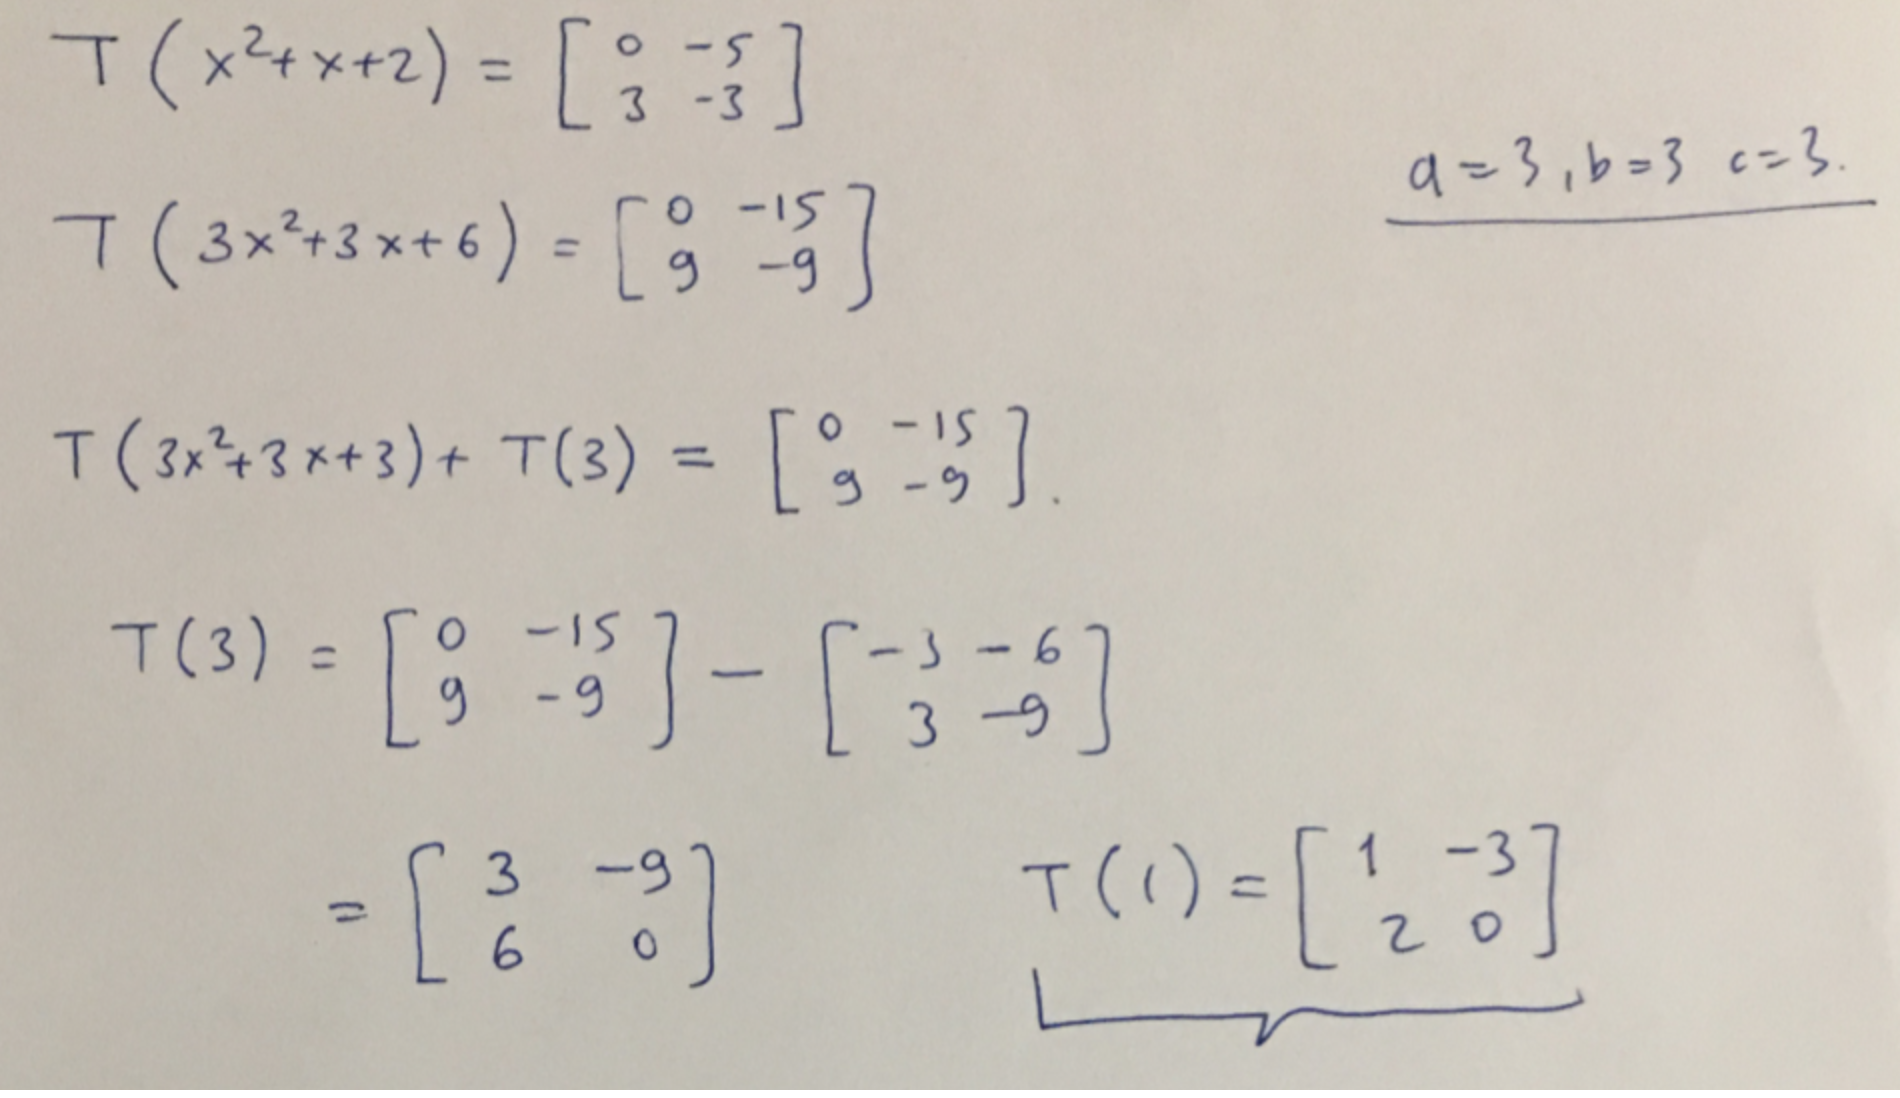 T(x²+x+2) = [0 -5; 3 -3]
a=3, b=3 c=3.
T(3x²+3x+6) = [0 -15; 9 -9]
T(3x²+3x+3) + T(3) = [0 -15; 9 -9].
T(3) = [0 -15; 9 -9] - [-3 -6; 3 -9]
= [3 -9; 6 0] T(1) = [1 -3; 2 0]